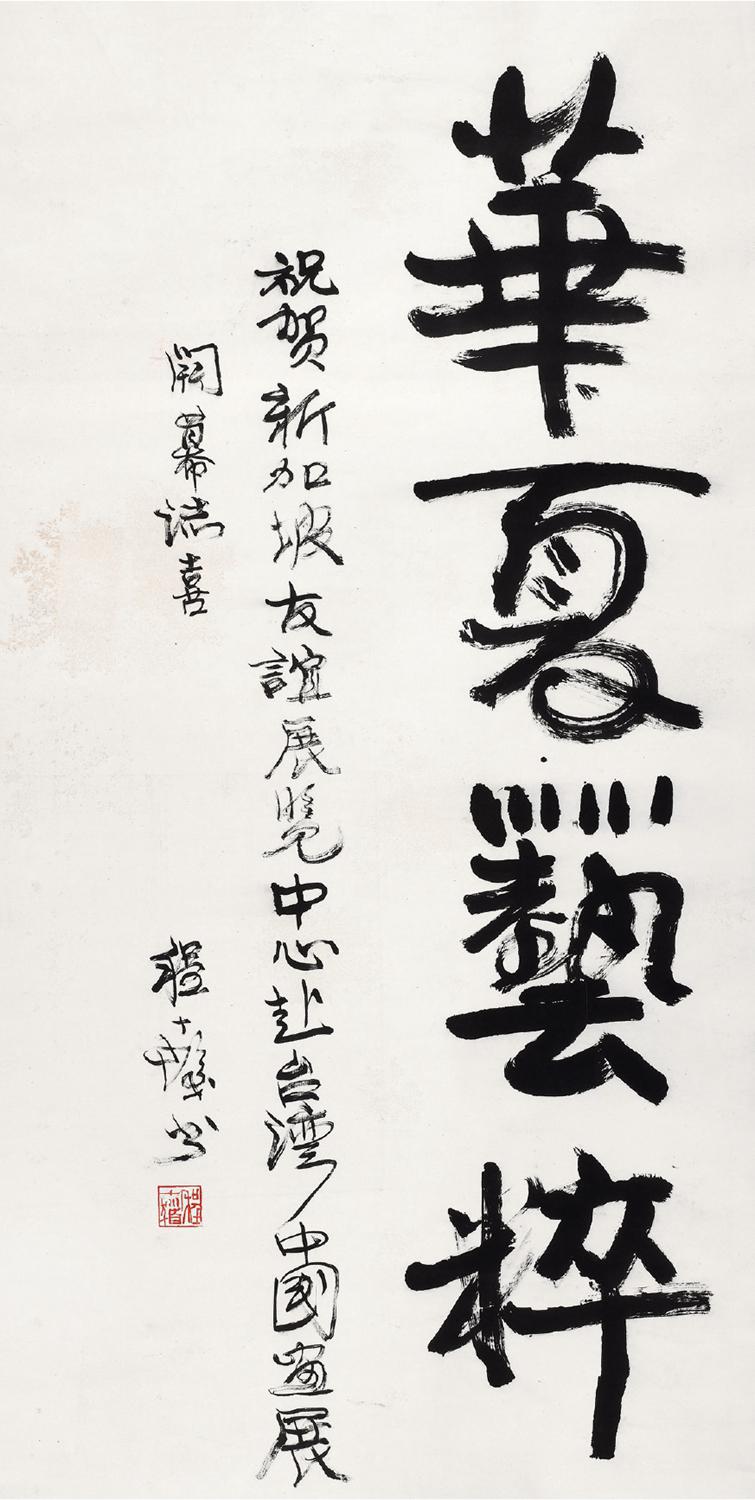 華夏藝粹
祝贺新加坡友誼展览中心赴台湾中國畫展
開幕誌喜
程十髮书